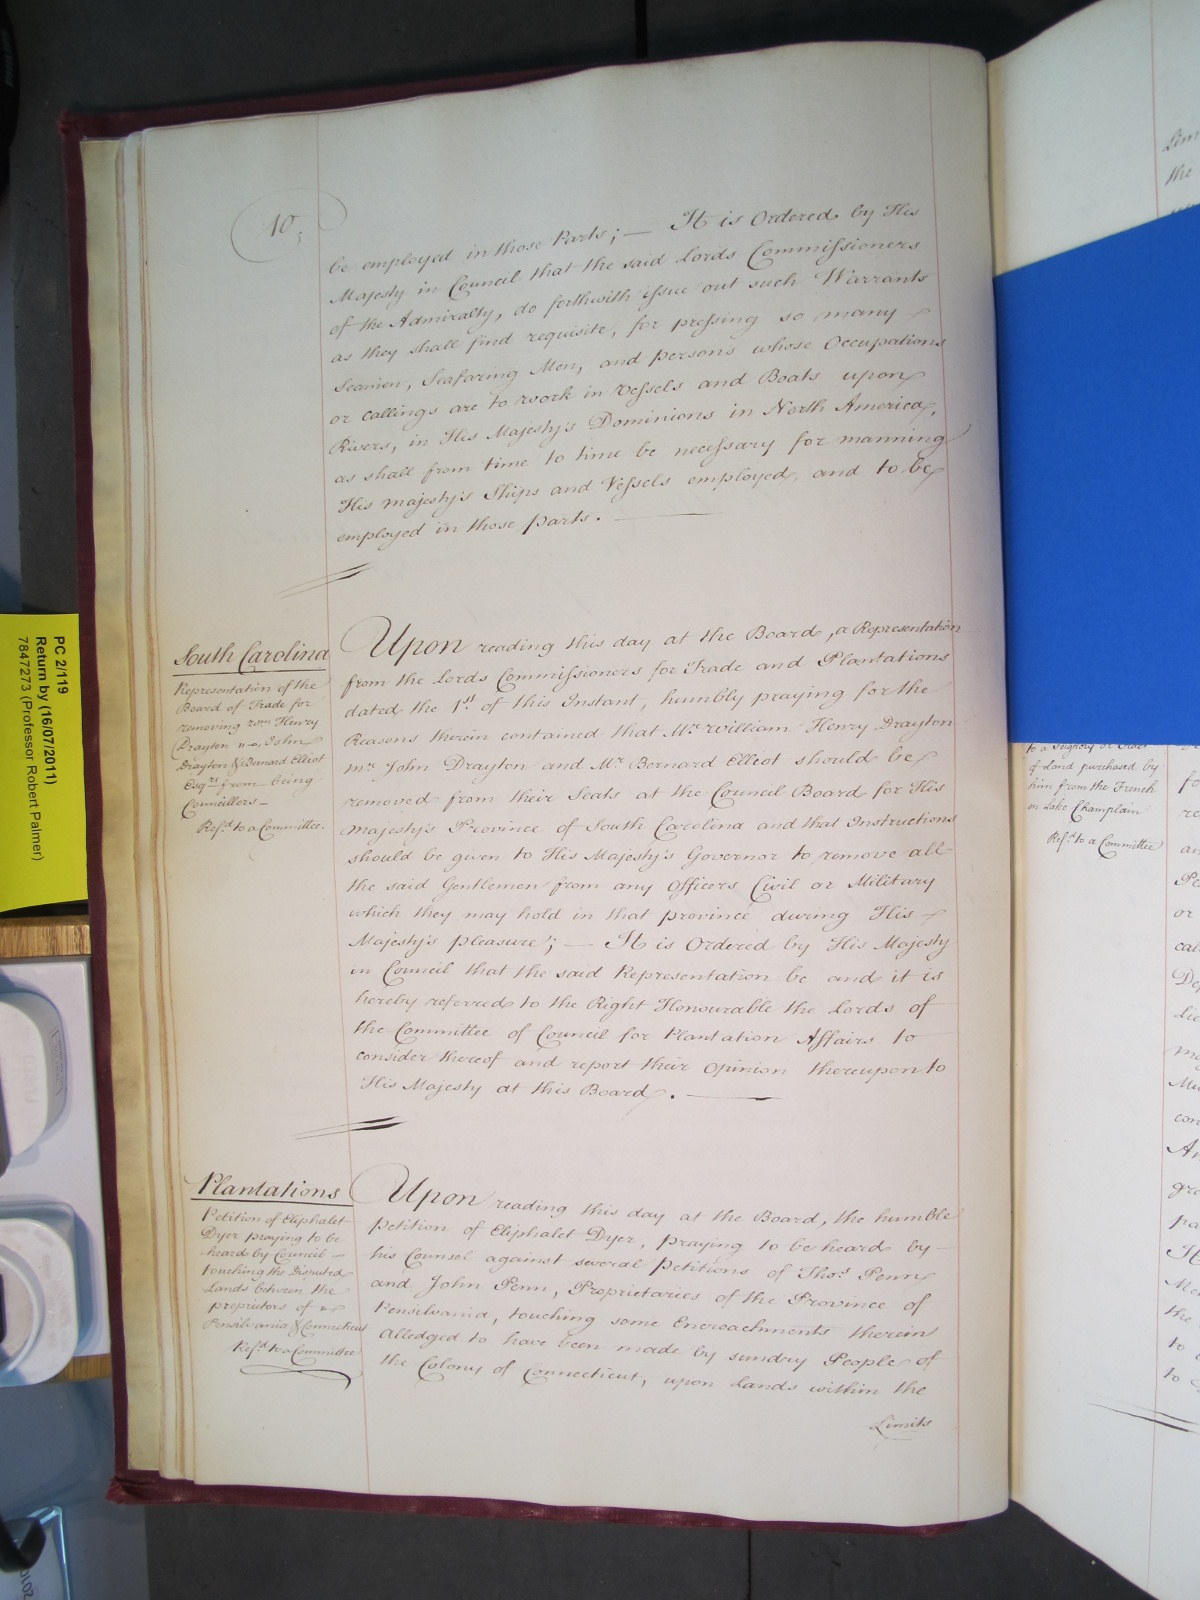 10;
be employed in those Parts; — It is Ordered by His
Majesty in Council that the said Lords Commissioners
of the Admiralty, do forthwith issue out such Warrants
as they shall find requisite, for pressing so many
Seamen, Seafaring Men, and persons whose Occupations
or callings are to work in Vessels and Boats upon
Rivers, in His Majesty's Dominions in North America,
as shall from time to time be necessary for manning
His majesty's Ships and Vessels employed, and to be
employed in those parts.
South Carolina
Representation of the
Board of Trade for
removing Wm Henry
Drayton John
Drayton & Bernard Elliot
Esqrs from being
Councillors —
Ref.d to a Committee.
Upon reading this day at the Board, a Representation
from the Lords Commissioners for Trade and Plantations
dated the 1st of this Instant, humbly praying for the
Reasons therein contained that Mr William Henry Drayton
Mr John Drayton and Mr Bernard Elleot should be
removed from their Seats at the Council Board for His
Majesty's Province of South Carolina and that Instructions
should be given to His Majesty's Governor to remove all
the said Gentlemen from any Officers Civil or Military
which they may hold in that province during His
Majesty's pleasure; — It is Ordered by His Majesty
in Council that the said Representation be and it is
hereby referred to the Right Honourable the Lords of
the Committee of Council for Plantation Affairs to
consider thereof and report their Opinion thereupon to
His Majesty at this Board.
Plantations
Petition of Eliphalet
Dyer praying to be
heard by Council —
touching the Disputed
Lands between the
proprietors of
Pensilvania & Connecticut
Ref.d to a Committee
Upon reading this day at the Board, the humble
petition of Eliphalet Dyer, praying to be heard by
his Counsel against several petitions of Thos Penn
and John Penn, Proprietaries of the Province of
Pensilvania, touching some Encroachments therein
alledged to have been made by sundry People of
the Colony of Connecticut, upon Lands within the
Limits
PC 2/119
Return by (16/07/2011)
7847273 (Professor Robert Palmer)
Lim
the
of Land purchased by
him from the French
on Lake Champlain
Ref.d to a Committee